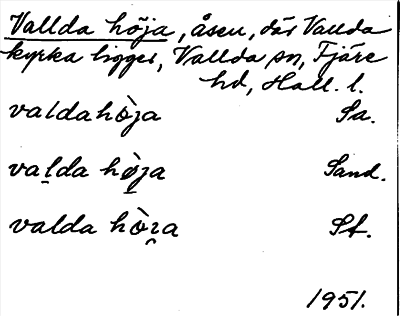 Vallda höja, åsen, där Vallda
kyrka ligger, Vallda sn, Fjäre
hd, Hall. l.
valdahòja Sa.
vaḻda hø̀ja Sand.
valda hòɿa St.
1951.